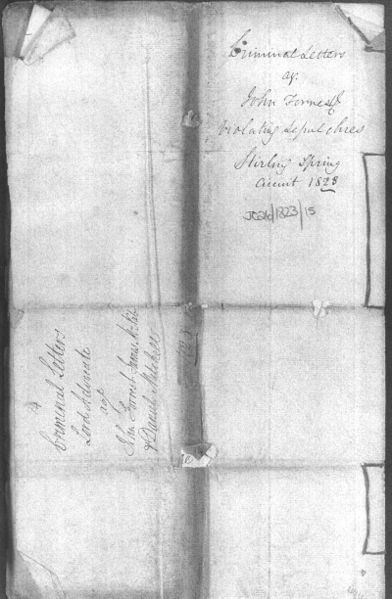 Criminal Letters
agt
John Forrest
Violating Sepulchres
Stirling Spring
Circuit 1823
JC26/1823/15
Criminal Letters
Lord Advocate
agt
John Forrest James McNab
& Daniel Mitchell